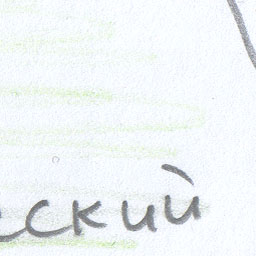 еский